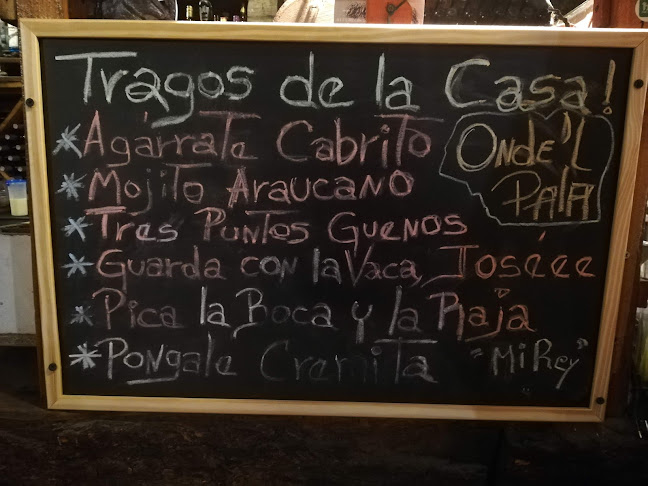 Tragos de la Casa!
* Agárrate Cabrito
* Mojito Araucano
* Tres Puntos Guenos
* Guarda con la Vaca, Joséee
* Pica la Boca y la Raja
* Pongale Cremita "Mi Rey"
Onde'l
Pala